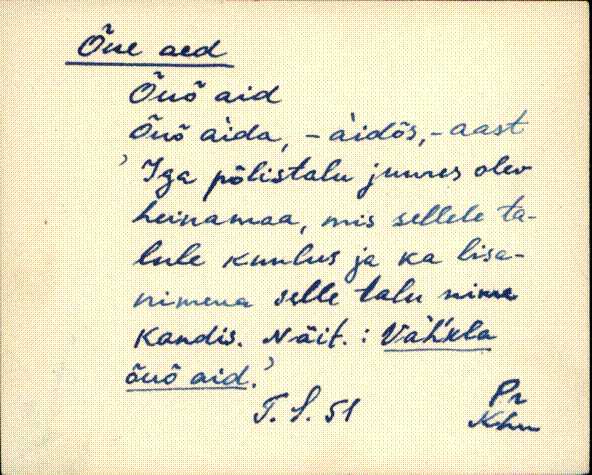 Õue aed
Õuõ aid
Õuõ àida, -àidõs, -aast
'Iga põlistalu juures olev
heinamaa, mis sellele ta-
lule kuulus ja ka lisa-
nimena selle talu nime
kandis. Näit.: Väh'kla
õuõ aid.'
T. S. 51 Pr
Khn